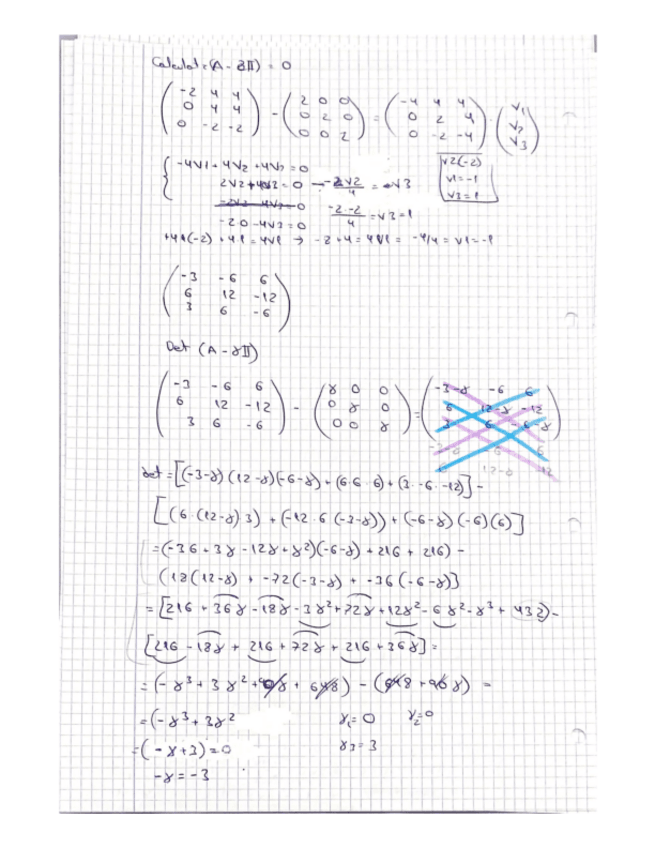 Calculat: (A - 2II) = 0
-2 4 4
0 4 4
0 -2 -2
-
2 0 0
0 2 0
0 0 2
=
-4 4 4
0 2 4
0 -2 -4
·
V1
V2
V3
-4V1 + 4V2 + 4V3 = 0
2V2 + 4V3 = 0 - -2V2/4 = V3
-2V2 - 4V3 = 0
-20 - 4V3 = 0
-2·-2/4 = V3 = 1
V2(-2)
V1 = -1
V3 = 1
+4·1(-2) + 4·1 = 4V1 → -2 + 4 = 4V1 = -4/4 = V1 = -1
-3 -6 6
6 12 -12
3 6 -6
Det (A - γII)
-3 -6 6
6 12 -12
3 6 -6
-
γ 0 0
0 γ 0
0 0 γ
=
-3-γ -6 6
6 12-γ -12
3 6 -6-γ
det = [(-3-γ)(12-γ)(-6-γ) + (6·6·6) + (3·-6·-12)] -
[(6·(12-γ)3) + (-12·6(-3-γ)) + (-6-γ)(-6)(6)]
= (-36 + 3γ - 12γ + γ²)(-6-γ) + 216 + 216) -
(18(12-γ) + -72(-3-γ) + -36(-6-γ)]
= [216 + 36γ - 18γ - 3γ² + 72γ + 12γ² - 6γ² - γ³ + 432) -
[216 - 18γ + 216 + 72γ + 216 + 36γ] =
= (-γ³ + 3γ² + 90γ + 648) - (648 + 90γ) =
= (-γ³ + 3γ² γ1 = 0 γ2 = 0
= (-γ + 3) = 0 γ3 = 3
-γ = -3